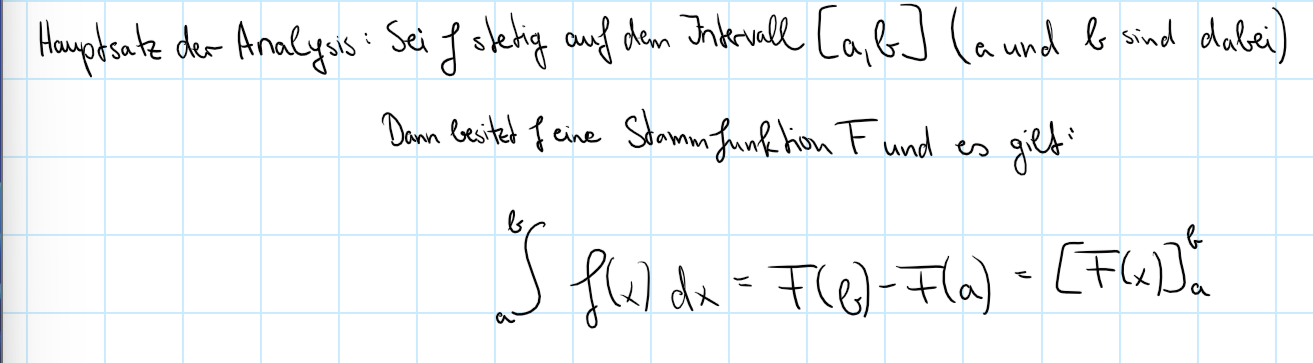 Hauptsatz der Analysis: Sei f stetig auf dem Intervall [a,b] (a und b sind dabei)
Dann besitzt f eine Stammfunktion F und es gilt:
∫_a^b f(x) dx = F(b) - F(a) = [F(x)]_a^b